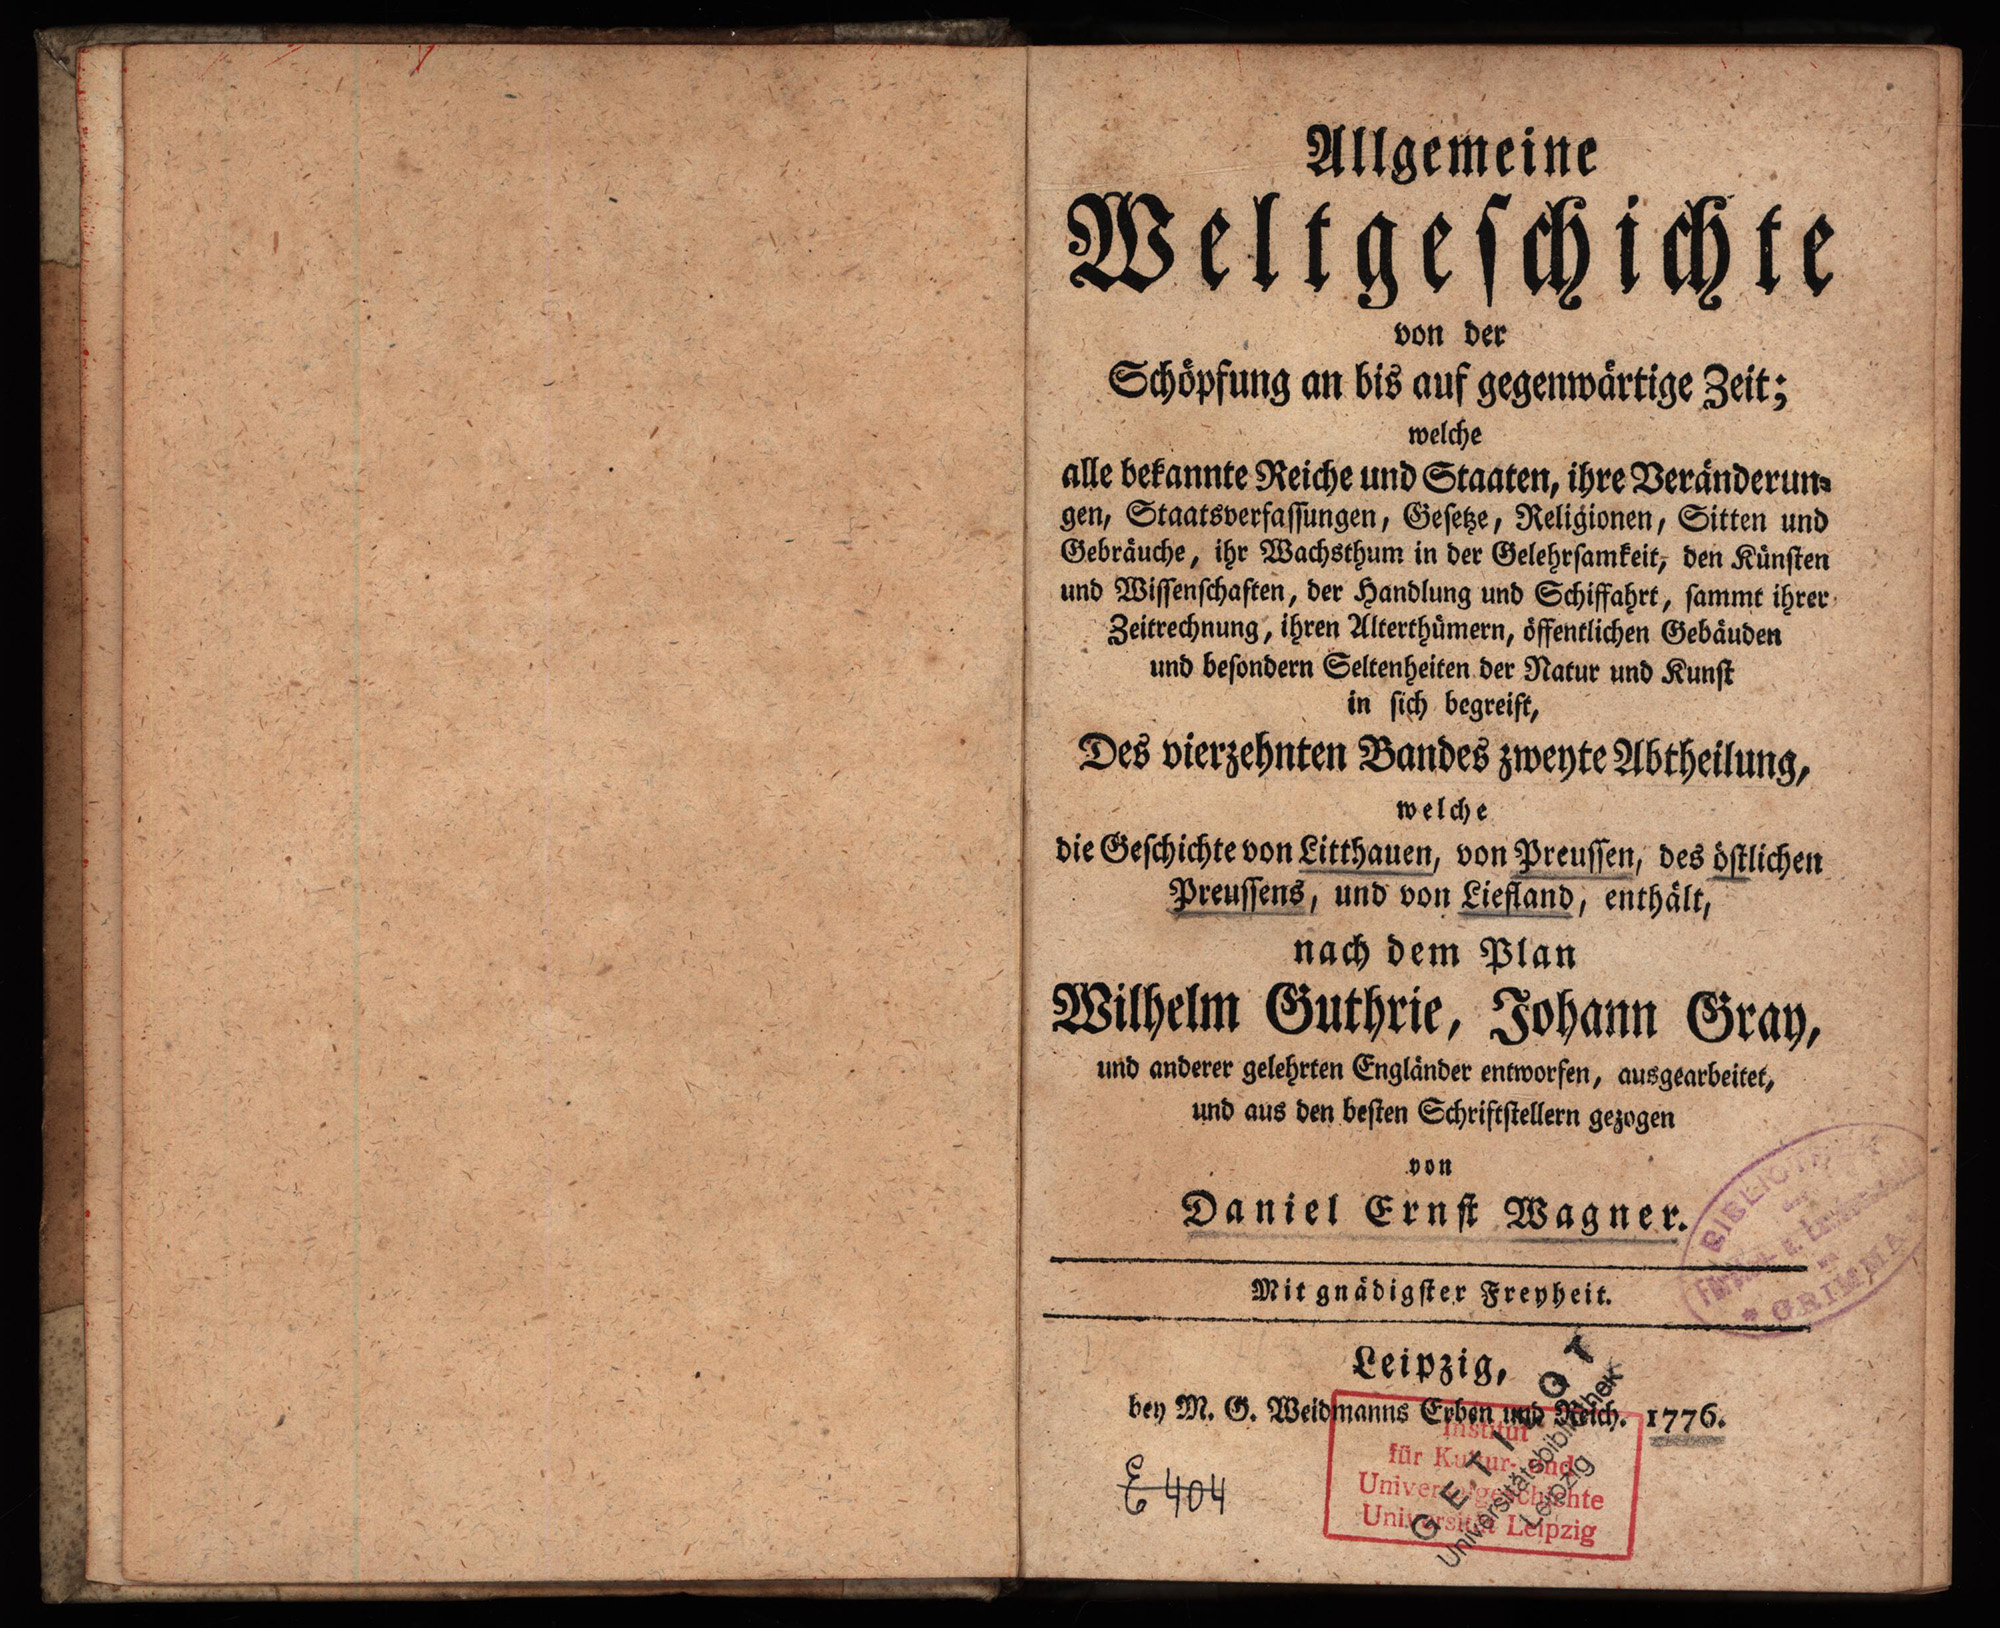 Allgemeine
Weltgeschichte
von der
Schöpfung an bis auf gegenwärtige Zeit;
welche
alle bekannte Reiche und Staaten, ihre Veränderun-
gen, Staatsverfassungen, Gesetze, Religionen, Sitten und
Gebräuche, ihr Wachsthum in der Gelehrsamkeit, den Künsten
und Wissenschaften, der Handlung und Schiffahrt, sammt ihrer
Zeitrechnung, ihren Alterthümern, öffentlichen Gebäuden
und besondern Seltenheiten der Natur und Kunst
in sich begreift,
Des vierzehnten Bandes zweyte Abtheilung,
welche
die Geschichte von Litthauen, von Preussen, des östlichen
Preussens, und von Liefland, enthält,
nach dem Plan
Wilhelm Guthrie, Johann Gray,
und anderer gelehrten Engländer entworfen, ausgearbeitet,
und aus den besten Schriftstellern gezogen
von
Daniel Ernst Wagner.
Mit gnädigster Freyheit.
Leipzig,
bey M. G. Weidmanns Erben und Reich. 1776.
E 404
Institut
für Kultur- und
Universalgeschichte
Universität Leipzig
GETILGT
Universitätsbibliothek
Leipzig
GRIMMA